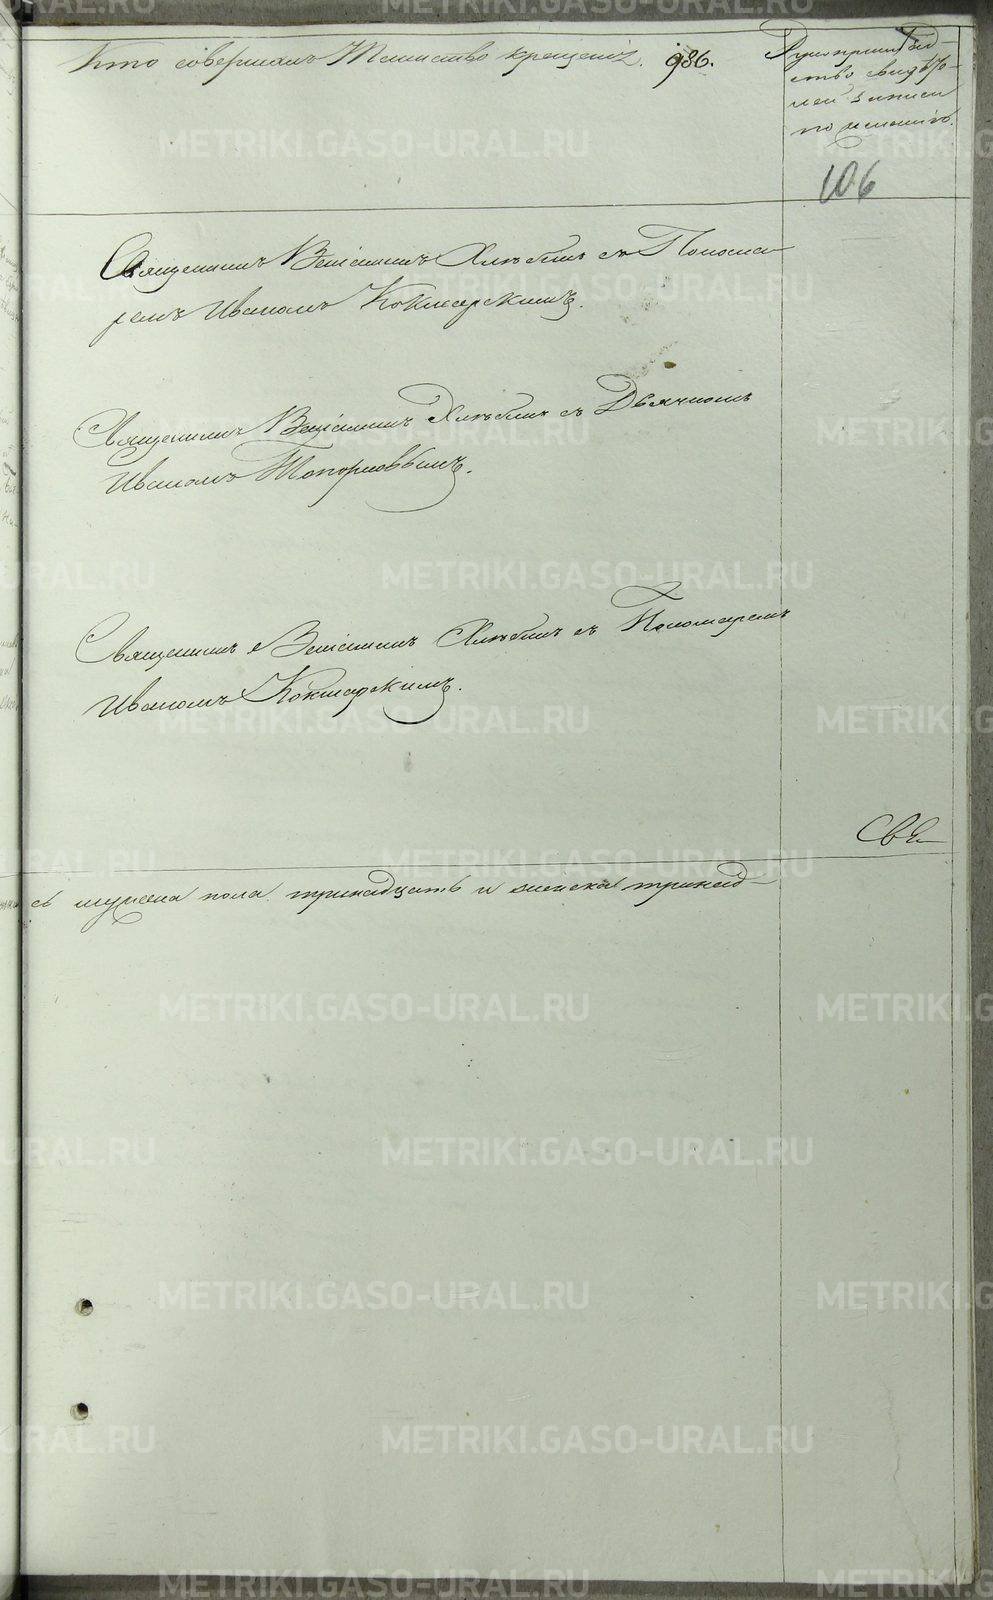 Кто совершалъ Таинство крещенiя. 986.
Рукоприклад-
ство свидѣте-
лей записи
по желанiю.
106
Священникъ Венiаминъ Хлѣбинъ съ Понома-
ремъ Иваномъ Кокшарскимъ.
Священникъ Венiаминъ Хлѣбинъ съ Дьячкомъ
Иваномъ Топорковымъ.
Священникъ Венiаминъ Хлѣбинъ съ Пономаремъ
Иваномъ Кокшарскимъ.
Све
съ мужеска пола тринадцать и женска тринад-
METRIKI.GASO-URAL.RU